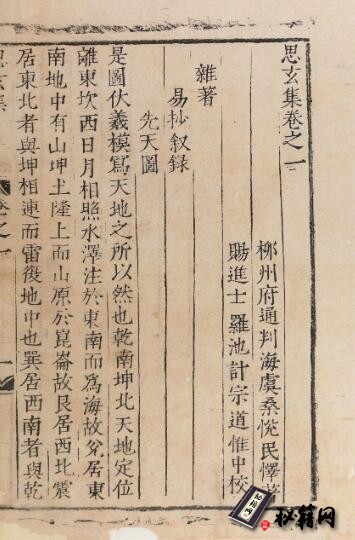 思玄集卷之一
柳州府通判海虞桑悅民懌著
賜進士羅池計宗道惟中校
雜著
易抄叙録
先天圖
是圖伏羲模寫天地之所以然也乾南坤北天地定位
離東坎西日月相照水澤注於東南而為海故兌居東
南地中有山坤土隆上而山原於崑崙故艮居西北震
居東北者與坤相連而雷復地中也巽居西南者與乾
思玄集
卷之一
一
秘籍网
秘籍网